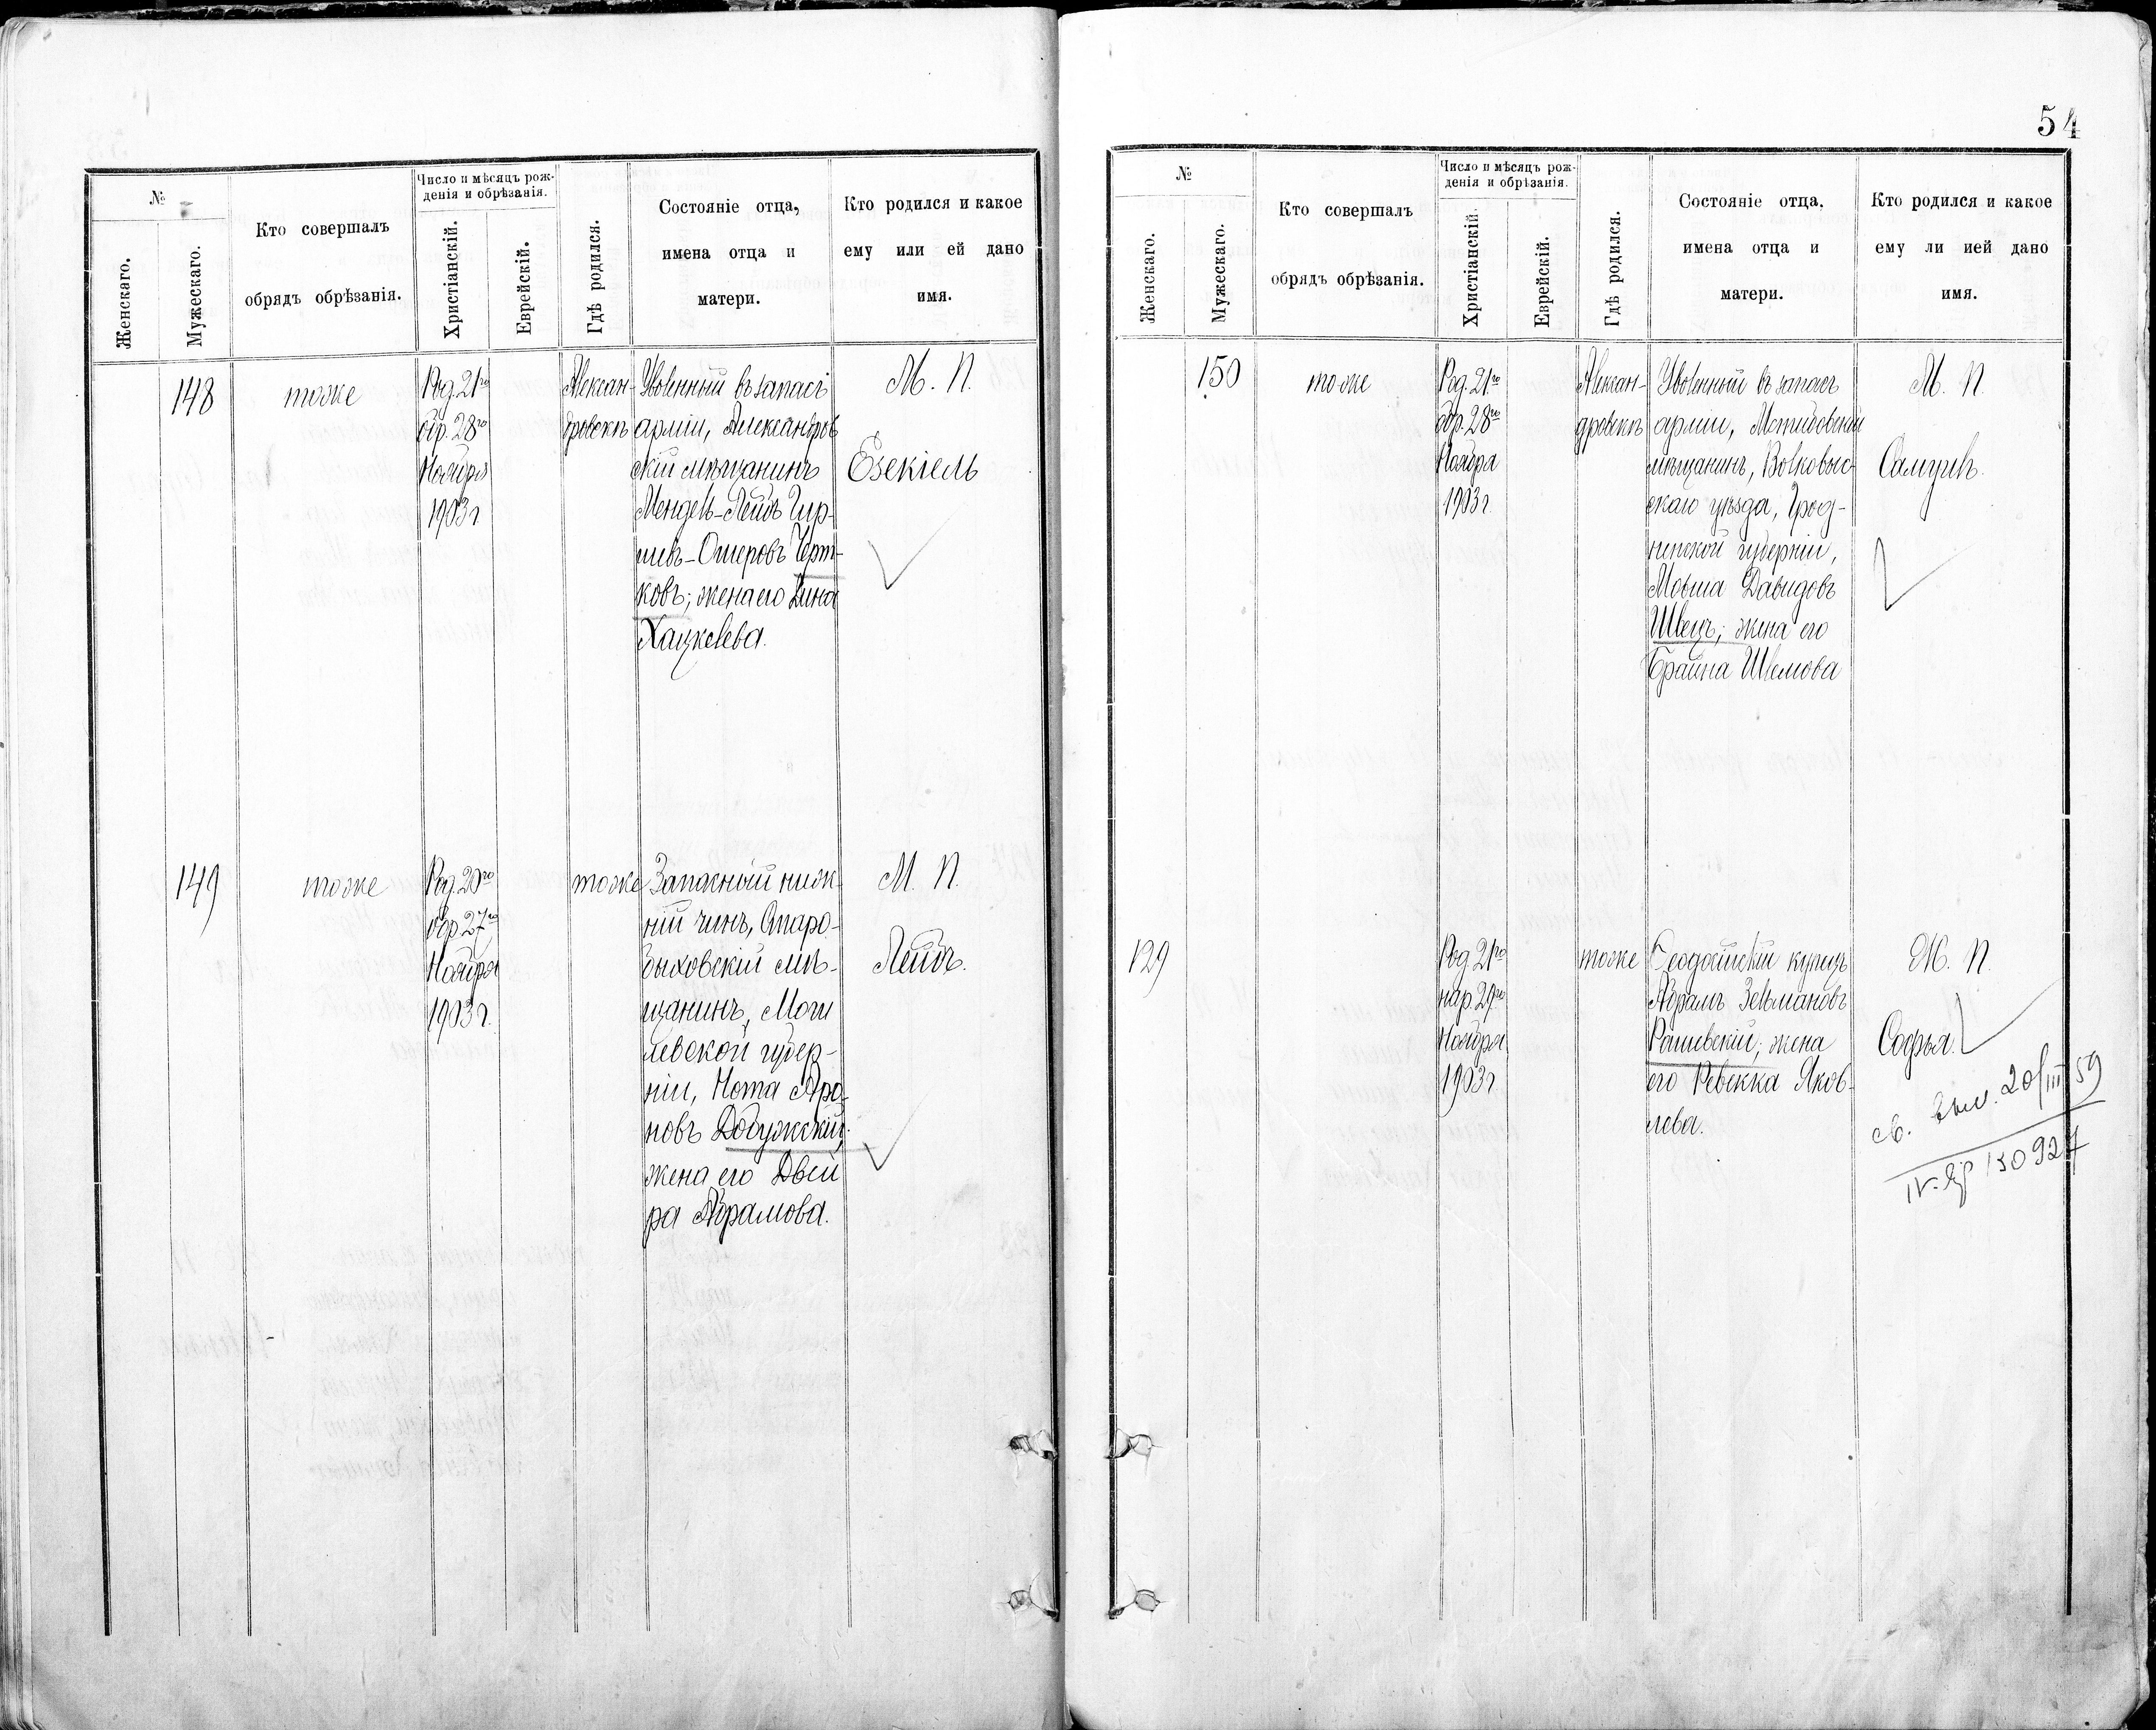 54
№
Женскаго.
Мужескаго.
Кто совершалъ
обрядъ обрѣзанія.
Число и мѣсяцъ рож-
денія и обрѣзанія.
Христіанскій.
Еврейскій.
Гдѣ родился.
Состояніе отца,
имена отца и
матери.
Кто родился и какое
ему или ей дано
имя.
148
тоже
Род. 21го
обр. 28го
Ноября
1903 г.
Алексан-
дровскъ
Уволенный въ запасъ
арміи, Александров
скій мѣщанинъ
Мендель-Лейбъ Гир-
шевъ-Ошеровъ Черт-
ковъ; жена его Дина
Хацкелева.
М. П.
Езекіель
149
тоже
Род. 20го
обр. 27го
Ноября
1903 г.
тоже
Запасный ниж-
ній чинъ, Старо-
быховскій мѣ-
щанинъ, Моги
левской губер-
ніи, Нота Аро-
новъ Добужскій;
жена его Двей
ра Абрамова.
М. П.
Лейбъ.
№
Женскаго.
Мужескаго.
Кто совершалъ
обрядъ обрѣзанія.
Число и мѣсяцъ рож-
денія и обрѣзанія.
Христіанскій.
Еврейскій.
Гдѣ родился.
Состояніе отца,
имена отца и
матери.
Кто родился и какое
ему ли ией дано
имя.
150
тоже
Род. 21го
обр. 28го
Ноября
1903 г.
Алексан-
дровскъ
Уволенный въ запасъ
арміи, Мстибовскій
мѣщанинъ, Волковыс-
скаго уѣзда, Грод-
ненской губерніи,
Мовша Давидовъ
Швецъ; жена его
Брайна Шлемова
М. П.
Самуилъ.
129
Род. 21го
нар. 29го
Ноября
1903 г.
тоже
Ѳеодосійскій купецъ
Абрамъ Зельмановъ
Рашевскій; жена
его Ревекка Яков-
лева.
Ж. П.
Софья.
св. выд. 20/III 59
130927